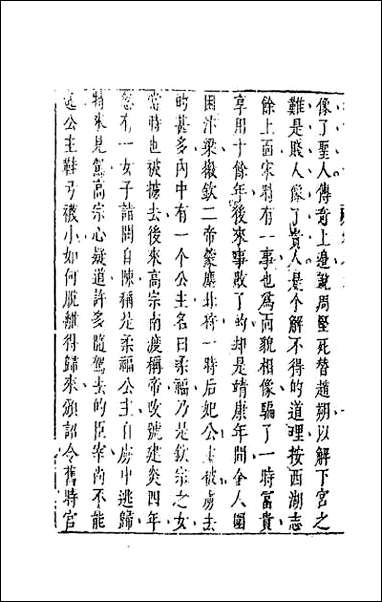 像了聖人傳奇上邊說周堅死替趙朔以解下宮之
難是賤人像了貴人是个解不得的道理按西湖志
餘上面宋時有一事也爲面貌相像騙了一時富貴
享用十餘年後來事敗了的却是靖康年間金人圍
困汴梁擄欽二帝蒙塵北狩一時后妃公主被虜去
的甚多內中有一个公主名曰柔福乃是欽宗之女
當時也被擄去後來高宗南渡稱帝改號建炎四年
忽有一女子詣闕自陳稱是柔福公主自虜中逃歸
特來見駕高宗心疑道許多隨駕去的臣宰尚不能
逃公主鞋弓襪小如何脫離得歸來頒詔令舊時官